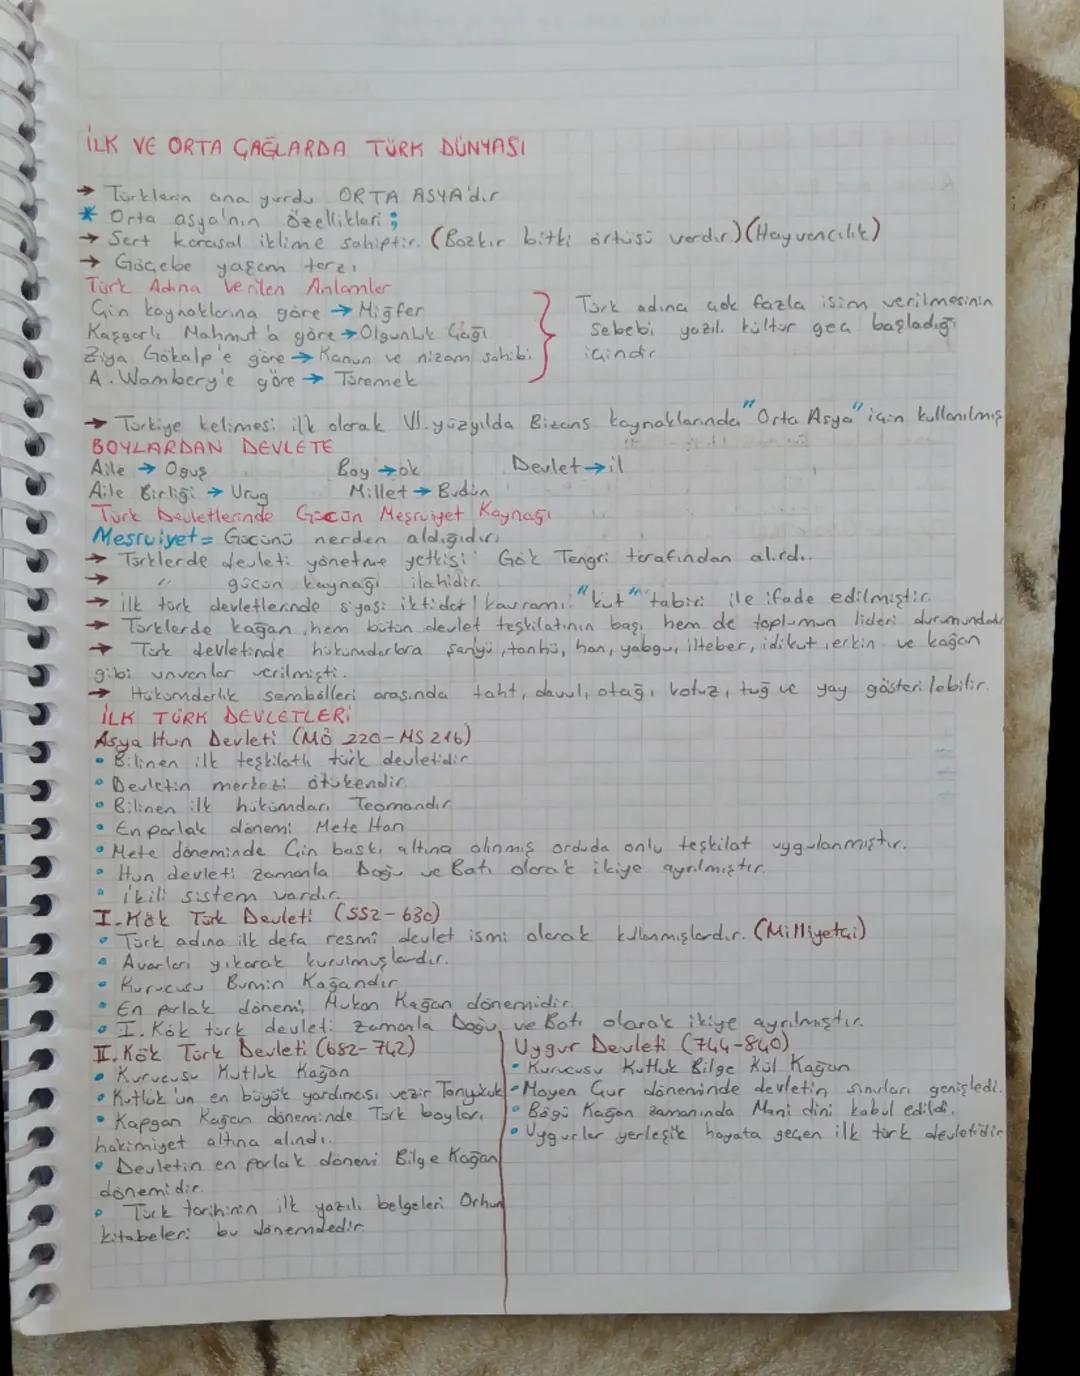 İLK VE ORTA ÇAĞLARDA TÜRK DÜNYASI
→ Türklerin ana yurdu ORTA ASYA'dır
* Orta asya'nın özellikleri ;
→ Sert karasal iklime sahiptir. (Bozkır bitki örtüsü vardır.) (Hayvancılık)
→ Göçebe yaşam tarzı
Türk Adına Verilen Anlamlar
Çin kaynaklarına göre → Miğfer
Kaşgarlı Mahmut'a göre → Olgunluk Çağı
Ziya Gökalp'e göre → Kanun ve nizam sahibi
A. Wambery'e göre → Türemek
Türk adına çok fazla isim verilmesinin
sebebi yazılı kültür geç başladığı
içindir
→ Türkiye kelimesi ilk olarak VI. yüzyılda Bizans kaynaklarında "Orta Asya" için kullanılmış
BOYLARDAN DEVLETE
Aile → Oguş Boy → ok Devlet → il
Aile Birliği → Urug Millet → Budun
Türk Devletlerinde Gücün Meşruiyet Kaynağı
Meşruiyet = Gücünü nerden aldığıdır.
→ Türklerde devleti yönetme yetkisi Gök Tengri tarafından alırdı.
→ " gücün kaynağı ilahidir.
→ ilk türk devletlerinde siyasi iktidar kavramı "kut" tabiri ile ifade edilmiştir.
→ Türklerde kağan hem bütün devlet teşkilatının başı, hem de toplumun lideri durumundadır
→ Türk devletinde hükümdarlara şanyü, tanhü, han, yabgu, ilteber, idikut, erkin ve kağan
gibi unvanlar verilmişti.
→ Hükümdarlık sembolleri arasında taht, davul, otağı, kotuz, tuğ ve yay gösterilebilir.
İLK TÜRK DEVLETLERİ
Asya Hun Devleti (MÖ 220-MS 216)
• Bilinen ilk teşkilatlı türk devletidir
• Devletin merkezi ötükendir
• Bilinen ilk hükümdarı Teomandır
• En parlak dönemi Mete Han
• Mete döneminde Çin baskı altına alınmış orduda onlu teşkilat uygulanmıştır.
• Hun devleti zamanla Doğu ve Batı olarak ikiye ayrılmıştır.
• ikili sistem vardır.
I. Kök Türk Devleti (552-630)
• Türk adına ilk defa resmî devlet ismi olarak kullanmışlardır. (Milliyetçi)
• Avarları yıkarak kurulmuşlardır.
• Kurucusu Bumin Kağandır
• En parlak dönemi, Mukan Kağan dönemidir
• I. Kök türk devleti zamanla Doğu ve Batı olarak ikiye ayrılmıştır.
II. Kök Türk Devleti (682-742)
• Kurucusu Kutluk Kağan
• Kutluk'un en büyük yardımcısı vezir Tonyukuk
• Kapgan Kağan döneminde Türk boyları
hakimiyet altına alındı.
• Devletin en parlak dönemi Bilge Kağan
dönemidir.
• Türk tarihinin ilk yazılı belgeleri Orhun
kitabeleri bu dönemdedir
Uygur Devleti (744-840)
• Kurucusu Kutluk Bilge Kül Kağan
• Moyen Çur döneminde devletin sınırları genişledi.
• Bögü Kağan zamanında Mani dini kabul edildi.
• Uygurlar yerleşik hayata geçen ilk türk devletidir